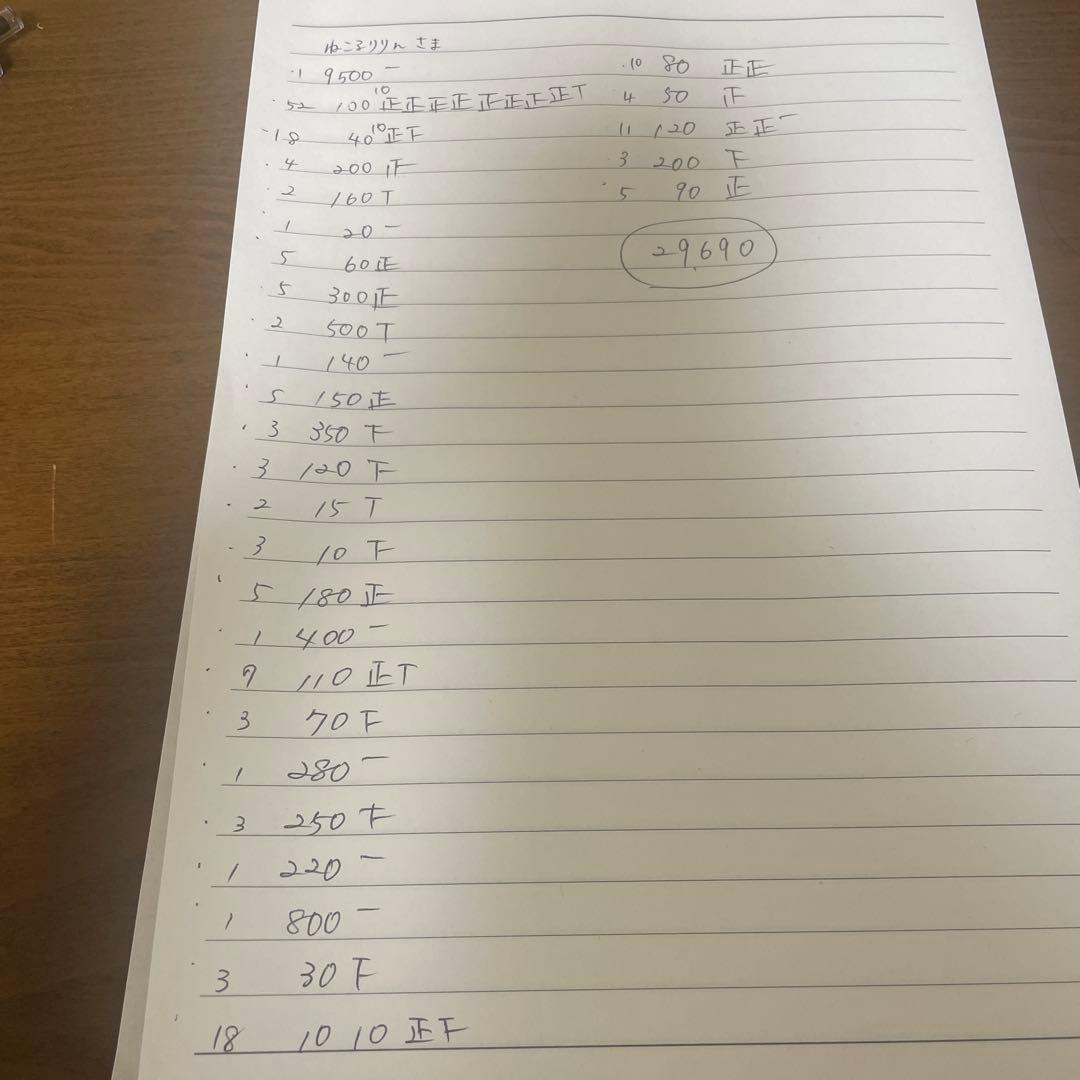 ねころりりんさま
1 9500 一
52 100 10 正正正正正正正正T
18 40 10 正下
4 200 正
2 160 T
1 20 一
5 60 正
5 300 正
2 500 T
1 140 一
5 150 正
3 350 下
3 120 下
2 15 T
3 10 下
5 180 正
1 400 一
7 110 正T
3 70 下
1 280 一
3 250 下
1 220 一
1 800 一
3 30 下
18 10 10 正下
10 80 正正
4 50 正
11 120 正正一
3 200 下
5 90 正
29,690